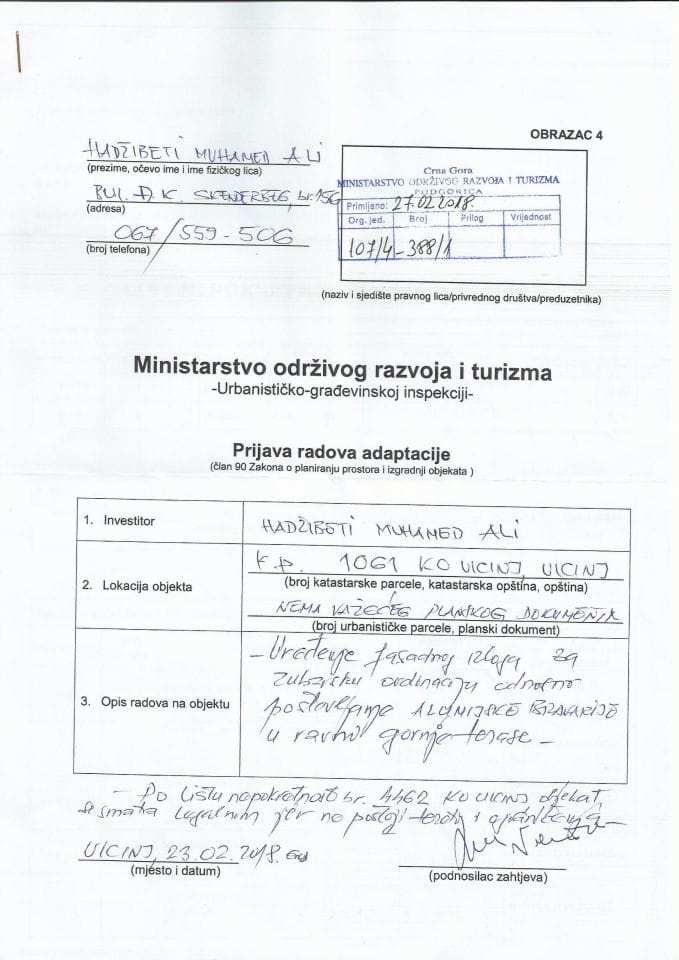 OBRAZAC 4
HADŽIBETI MUHAMED ALI
(prezime, očevo ime i ime fizičkog lica)
BUL. Đ. K. SKENDERBEG, br. 156
(adresa)
067/559-506
(broj telefona)
Crna Gora
MINISTARSTVO ODRŽIVOG RAZVOJA I TURIZMA
PODGORICA
Primljeno: 27.02.2018.
Org. jed. Broj Prilog Vrijednost
107/4-388/1
(naziv i sjedište pravnog lica/privrednog društva/preduzetnika)
Ministarstvo održivog razvoja i turizma
-Urbanističko-građevinskoj inspekciji-
Prijava radova adaptacije
(član 90 Zakona o planiranju prostora i izgradnji objekata )
1. Investitor
HADŽIBETI MUHAMED ALI
2. Lokacija objekta
K.P. 1061 KO ULCINJ, ULCINJ
(broj katastarske parcele, katastarska opština, opština)
NEMA VAŽEĆEG PLANSKOG DOKUMENTA
(broj urbanističke parcele, planski dokument)
3. Opis radova na objektu
- Uređenje fasadnog izloga za
zubarsku ordinaciju odnosno
postavljanje ALUMIJSKE BRAVARIJE
u ravni gornje terase -
- Po listu nepokretnosti br. 4462 KO ULCINJ objekat
se smatra legalnim jer ne postoji tereti i ograničenja -
ULCINJ, 23.02.2018. God
(mjesto i datum)
(podnosilac zahtjeva)